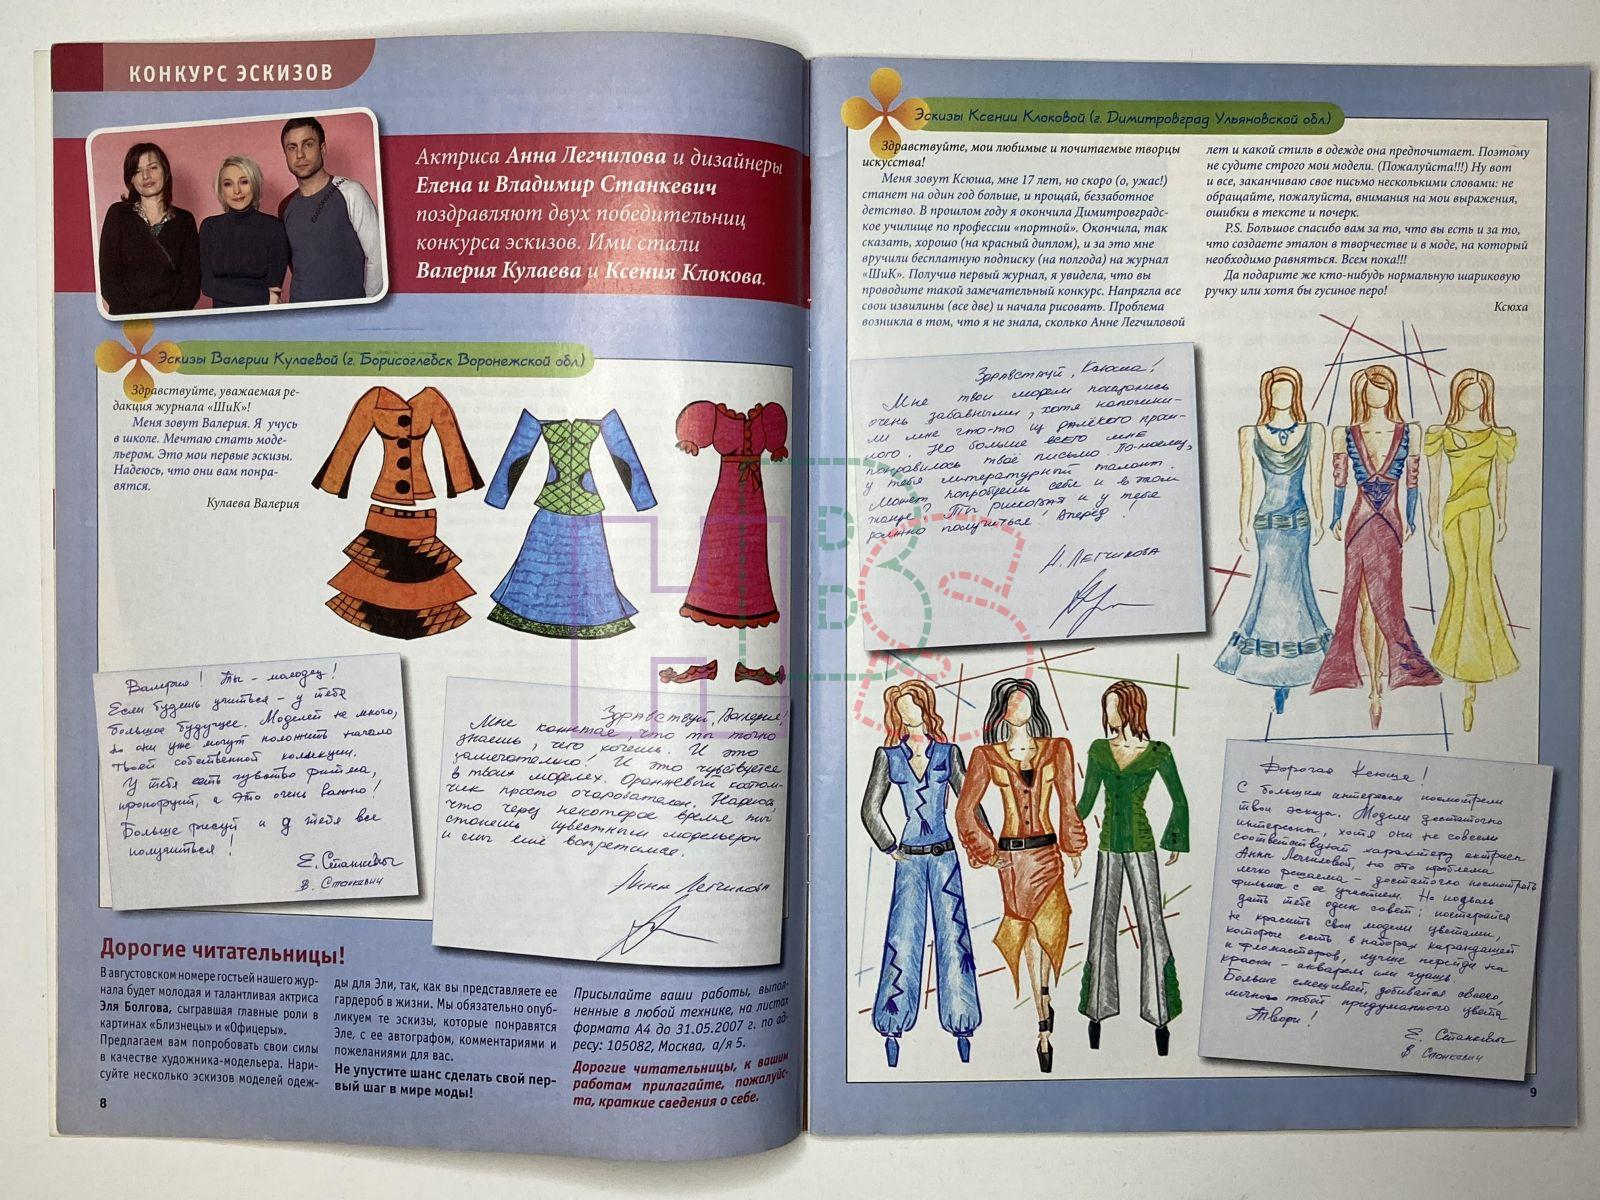 КОНКУРС ЭСКИЗОВ
Актриса Анна Легчилова и дизайнеры
Елена и Владимир Станкевич
поздравляют двух победительниц
конкурса эскизов. Ими стали
Валерия Кулаева и Ксения Клокова.
Эскизы Валерии Кулаевой (г. Борисоглебск Воронежской обл.)
Здравствуйте, уважаемая ре-
дакция журнала «ШиК»!
Меня зовут Валерия. Я учусь
в школе. Мечтаю стать моде-
льером. Это мои первые эскизы.
Надеюсь, что они вам понра-
вятся.
Кулаева Валерия
Валерия! Ты - молодец!
Если будешь учиться - у тебя
большое будущее. Моделей не много,
но они уже могут положить начало
твоей собственной коллекции.
У тебя есть чувство ритма,
пропорций, а это очень важно!
Больше рисуй и у тебя все
получиться!
Е. Станкевич
В. Станкевич
Здравствуй, Валерия!
Мне кажется, что ты точно
знаешь, чего хочешь. И это
замечательно! И это чувствуется
в твоих моделях. Оранжевый костюм-
чик просто очарователен. Надеюсь,
что через некоторое время ты
станешь известным модельером
и мы ещё встретимся.
Анна Легчилова
Дорогие читательницы!
В августовском номере гостьей нашего жур-
нала будет молодая и талантливая актриса
Эля Болгова, сыгравшая главные роли в
картинах «Близнецы» и «Офицеры».
Предлагаем вам попробовать свои силы
в качестве художника-модельера. Нари-
суйте несколько эскизов моделей одеж-
ды для Эли, так, как вы представляете ее
гардероб в жизни. Мы обязательно опуб-
ликуем те эскизы, которые понравятся
Эле, с ее автографом, комментариями и
пожеланиями для вас.
Не упустите шанс сделать свой пер-
вый шаг в мире моды!
Присылайте ваши работы, выпол-
ненные в любой технике, на листах
формата А4 до 31.05.2007 г. по ад-
ресу: 105082, Москва, а/я 5.
Дорогие читательницы, к вашим
работам прилагайте, пожалуйс-
та, краткие сведения о себе.
8
Эскизы Ксении Клоковой (г. Димитровград Ульяновской обл.)
Здравствуйте, мои любимые и почитаемые творцы
искусства!
Меня зовут Ксюша, мне 17 лет, но скоро (о, ужас!)
станет на один год больше, и прощай, беззаботное
детство. В прошлом году я окончила Димитровградс-
кое училище по профессии «портной». Окончила, так
сказать, хорошо (на красный диплом), и за это мне
вручили бесплатную подписку (на полгода) на журнал
«ШиК». Получив первый журнал, я увидела, что вы
проводите такой замечательный конкурс. Напрягла все
свои извилины (все две) и начала рисовать. Проблема
возникла в том, что я не знала, сколько Анне Легчиловой
лет и какой стиль в одежде она предпочитает. Поэтому
не судите строго мои модели. (Пожалуйста!!!) Ну вот
и все, заканчиваю свое письмо несколькими словами: не
обращайте, пожалуйста, внимания на мои выражения,
ошибки в тексте и почерк.
P.S. Большое спасибо вам за то, что вы есть и за то,
что создаете эталон в творчестве и в моде, на который
необходимо равняться. Всем пока!!!
Да подарите же кто-нибудь нормальную шариковую
ручку или хотя бы гусиное перо!
Ксюха
Здравствуй, Ксюша!
Мне твои модели показались
очень забавными, хотя напомни-
ли мне что-то из далёкого прош-
лого. Но больше всего мне
понравилось твоё письмо. По-моему,
у тебя литературный талант.
Может попробуешь себя и в этом
жанре? Ты рискни и у тебя
должно получиться! Вперёд!
А. Легчилова
Дорогая Ксюша!
С большим интересом посмотрели
твои эскизы. Модели достаточно
интересны, хотя они не совсем
соответствуют характеру актрисы
Анны Легчиловой, но это проблема
легко решаема - достаточно посмотреть
фильмы с ее участием. Но позволь
дать тебе один совет: постарайся
не красить свои модели цветами,
которые есть в наборах карандашей
и фломастеров, лучше перейди на
краски - акварель или гуашь.
Больше смешивай, добивайся своего,
лично тобой придуманного цвета
Твори!
Е. Станкевич
В. Станкевич
9